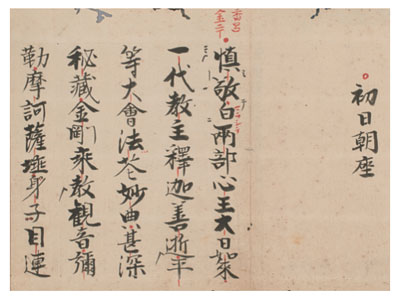 初日朝座
慎敬白兩部心王大日如来
一代教主釋迦善逝平
等大會法花妙典甚深
秘藏金剛乘教觀音彌
勒摩訶薩埵身子目連